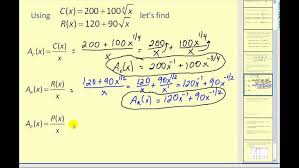 Using C(x) = 200 + 100∜x let's find
R(x) = 120 + 90√x
A_C(x) = C(x)/x = (200 + 100x^(1/4))/x = 200/x + 100x^(1/4)/x
A_C(x) = 200x^(-1) + 100x^(-3/4)
A_R(x) = R(x)/x = (120 + 90x^(1/2))/x = 120/x + 90x^(1/2)/x = 120x^(-1) + 90x^(-1/2)
A_R(x) = 120x^(-1) + 90x^(-1/2)
A_P(x) = P(x)/x =